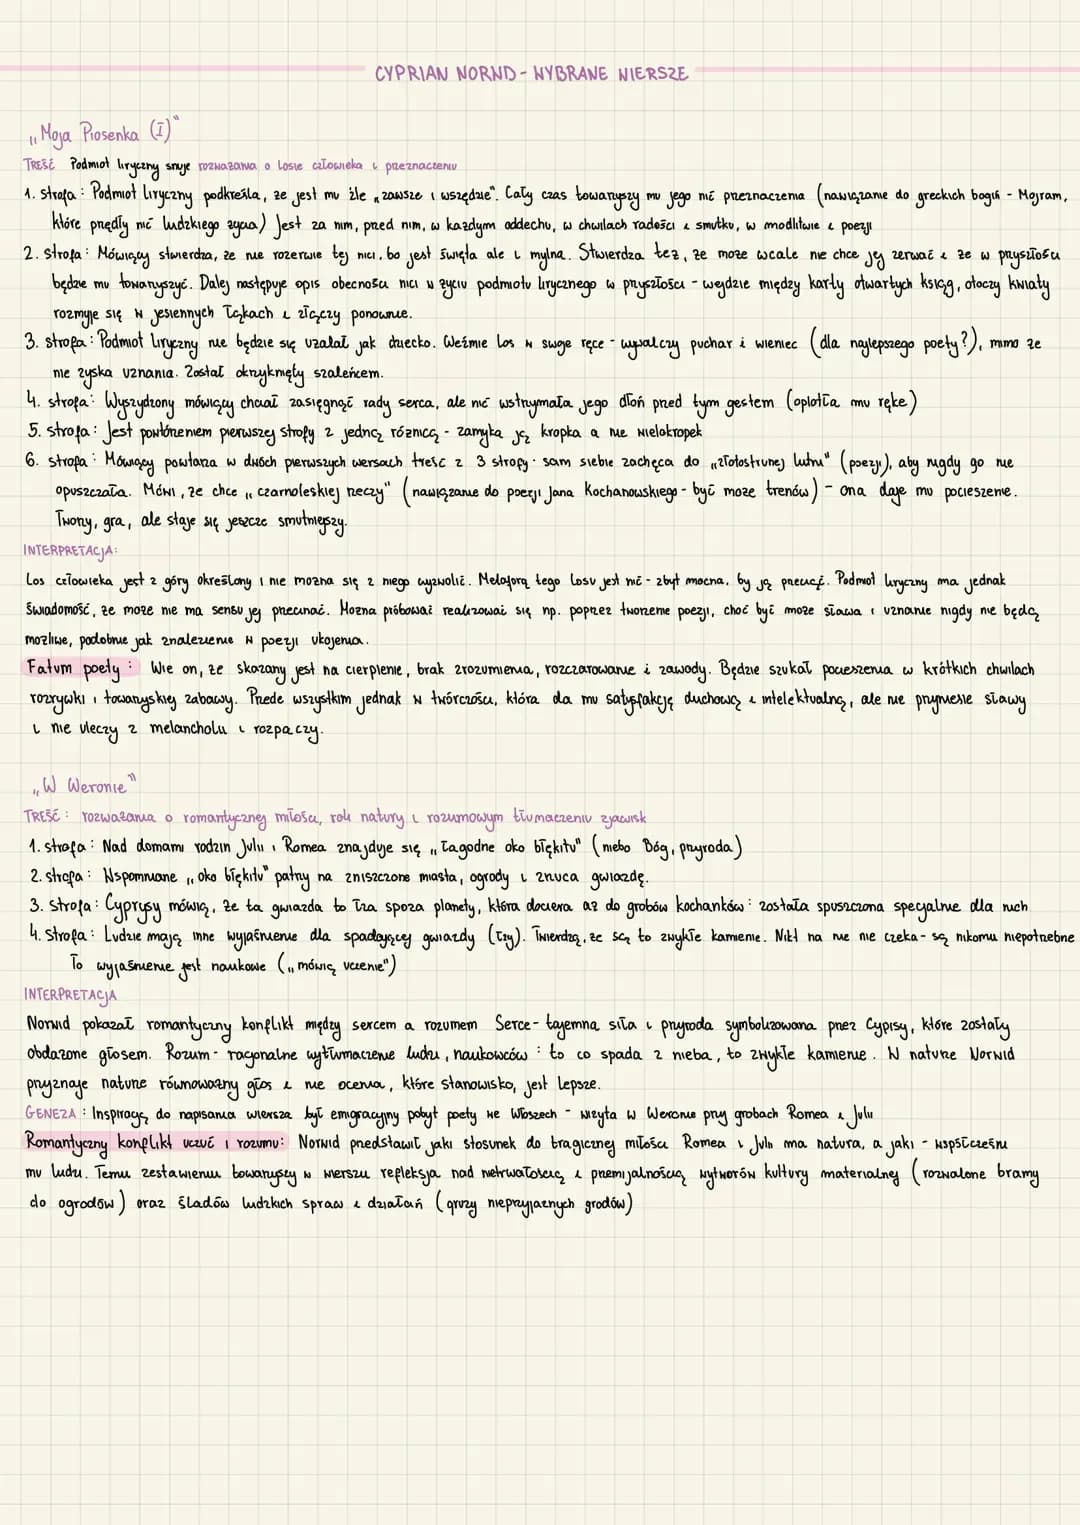 CYPRIAN NORWID - WYBRANE WIERSZE
„Moja Piosenka (I)"
TREŚĆ Podmiot liryczny snuje rozważania o losie człowieka i przeznaczeniu
1. strofa: Podmiot liryczny podkreśla, że jest mu źle „zawsze i wszędzie". Cały czas towarzyszy mu jego nić przeznaczenia (nawiązanie do greckich bogiń - Mojram,
które przędły nić ludzkiego życia) Jest za nim, przed nim, w każdym oddechu, w chwilach radości i smutku, w modlitwie i poezji
2. strofa: Mówiący stwierdza, że nie rozerwie tej nici, bo jest święta ale i mylna. Stwierdza też, że może wcale nie chce jej zerwać i że w przyszłości
będzie mu towarzyszyć. Dalej następuje opis obecności nici w życiu podmiotu lirycznego w przyszłości - wejdzie między karty otwartych ksiąg, otoczy kwiaty
rozmyje się w jesiennych łąkach i złączy ponownie.
3. strofa: Podmiot liryczny nie będzie się użalał jak dziecko. Weźmie los w swoje ręce - wywalczy puchar i wieniec (dla najlepszego poety?), mimo że
nie zyska uznania. Został okrzyknięty szaleńcem.
4. strofa: Wyszydzony mówiący chciał zasięgnąć rady serca, ale nić wstrzymała jego dłoń przed tym gestem (oplotła mu rękę)
5. strofa: Jest powtórzeniem pierwszej strofy z jedną różnicą - zamyka ją kropka a nie wielokropek
6. strofa: Mówiący powtarza w dwóch pierwszych wersach treść z 3 strofy. sam siebie zachęca do „złotostrunej lutni" (poezji), aby nigdy go nie
opuszczała. Mówi, że chce „czarnoleskiej rzeczy" (nawiązanie do poezji Jana Kochanowskiego - być może trenów) - ona daje mu pocieszenie.
Tworzy, gra, ale staje się jeszcze smutniejszy.
INTERPRETACJA:
Los człowieka jest z góry określony i nie można się z niego wyzwolić. Metaforą tego losu jest nić - zbyt mocna, by ją przeciąć. Podmiot liryczny ma jednak
świadomość, że może nie ma sensu jej przecinać. Można próbować realizować się np. poprzez tworzenie poezji, choć być może sława i uznanie nigdy nie będą
możliwe, podobnie jak znalezienie w poezji ukojenia.
Fatum poety: Wie on, że skazany jest na cierpienie, brak zrozumienia, rozczarowanie i zawody. Będzie szukał pocieszenia w krótkich chwilach
rozrywki i towarzyskiej zabawy. Przede wszystkim jednak w twórczości, która da mu satysfakcję duchową i intelektualną, ale nie przyniesie sławy
i nie uleczy z melancholii i rozpaczy.
„W Weronie"
TREŚĆ: rozważania o romantycznej miłości, roli natury i rozumowym tłumaczeniu zjawisk
1. strofa: Nad domami rodzin Julii i Romea znajduje się „łagodne oko błękitu" (niebo Bóg, przyroda)
2. strofa: Wspomniane „oko błękitu" patrzy na zniszczone miasta, ogrody i zrzuca gwiazdę.
3. strofa: Cyprysy mówią, że ta gwiazda to łza spoza planety, która dociera aż do grobów kochanków: została spuszczona specjalnie dla nich
4. strofa: Ludzie mają inne wyjaśnienie dla spadającej gwiazdy (łzy). Twierdzą, że są to zwykłe kamienie. Nikt na nie nie czeka - są nikomu niepotrzebne
To wyjaśnienie jest naukowe („mówią uczenie")
INTERPRETACJA
Norwid pokazał romantyczny konflikt między sercem a rozumem Serce - tajemna siła i przyroda symbolizowana przez Cyprysy, które zostały
obdarzone głosem. Rozum - racjonalne wytłumaczenie ludzi, naukowców: to co spada z nieba, to zwykłe kamienie. W naturze Norwid
przyznaje naturze równoważny głos i nie ocenia, które stanowisko, jest lepsze.
GENEZA: Inspiracją do napisania wiersza był emigracyjny pobyt poety we Włoszech - wizyta w Weronie przy grobach Romea i Julii
Romantyczny konflikt uczuć i rozumu: Norwid przedstawił jaki stosunek do tragicznej miłości Romea i Julii ma natura, a jaki - współcześni
mu ludzi. Temu zestawieniu towarzyszy w wierszu refleksja nad nietrwałością i przemijalnością wytworów kultury materialnej (rozwalone bramy
do ogrodów) oraz śladów ludzkich spraw i działań (gruzy nieprzyjaznych grodów)